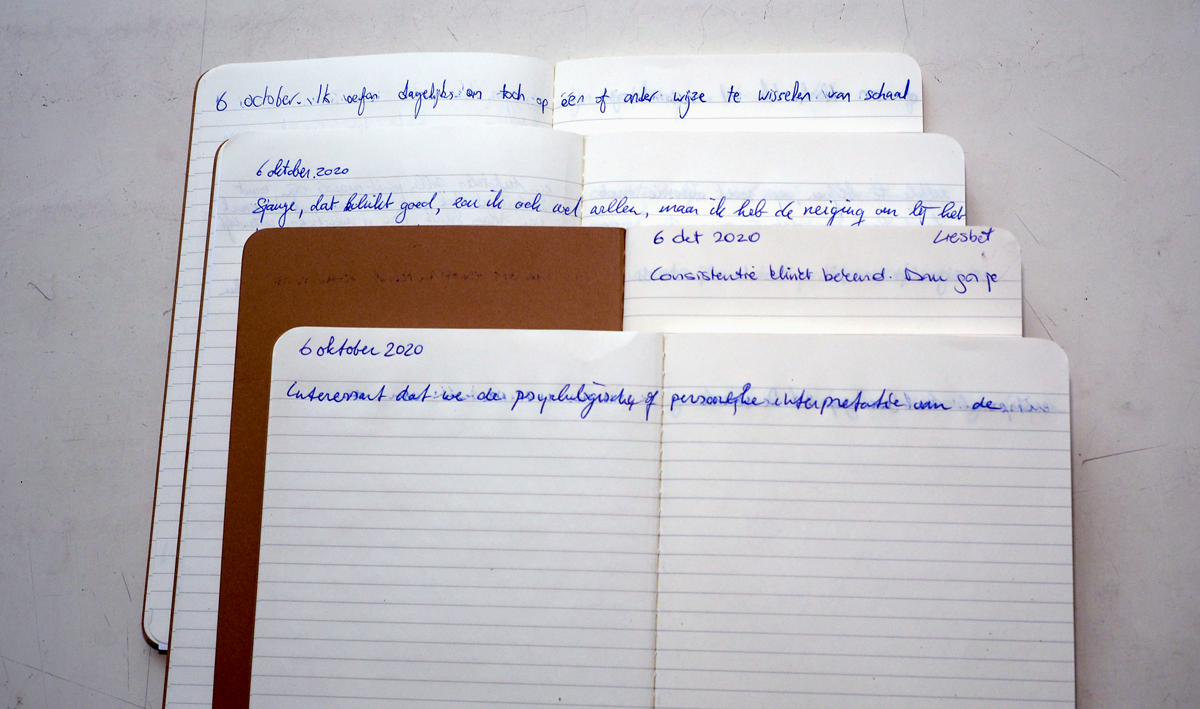 6 october. Ik oefen dagelijks om toch op één of ander wijze te wisselen van schaal
6 oktober 2020
dat klinkt goed, zou ik ook wel willen, maar ik heb de neiging om bij het
6 oct 2020 Liesbet
Consistentie klinkt bekend. Dan ga je
6 oktober 2020
Interessant dat we de psychologische of persoonlijke interpretatie van de